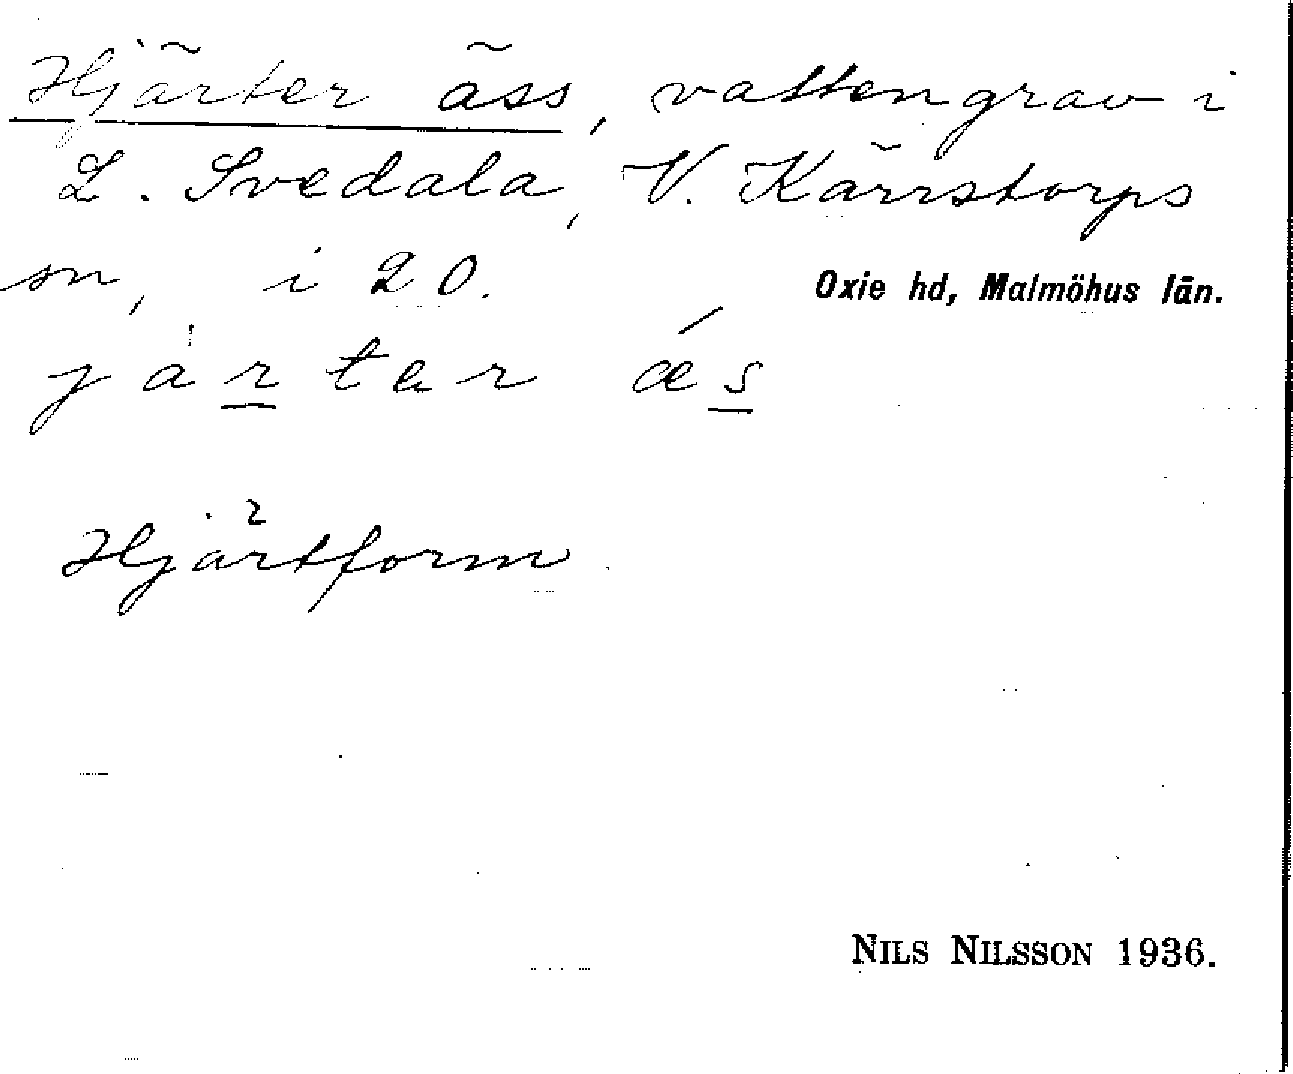 Hjärter äss, vattengrav i
L. Svedala, V. Kärrstorps
sn, i 20.
Oxie hd, Malmöhus län.
jàrtar ǽs
Hjärtform.
NILS NILSSON 1936.